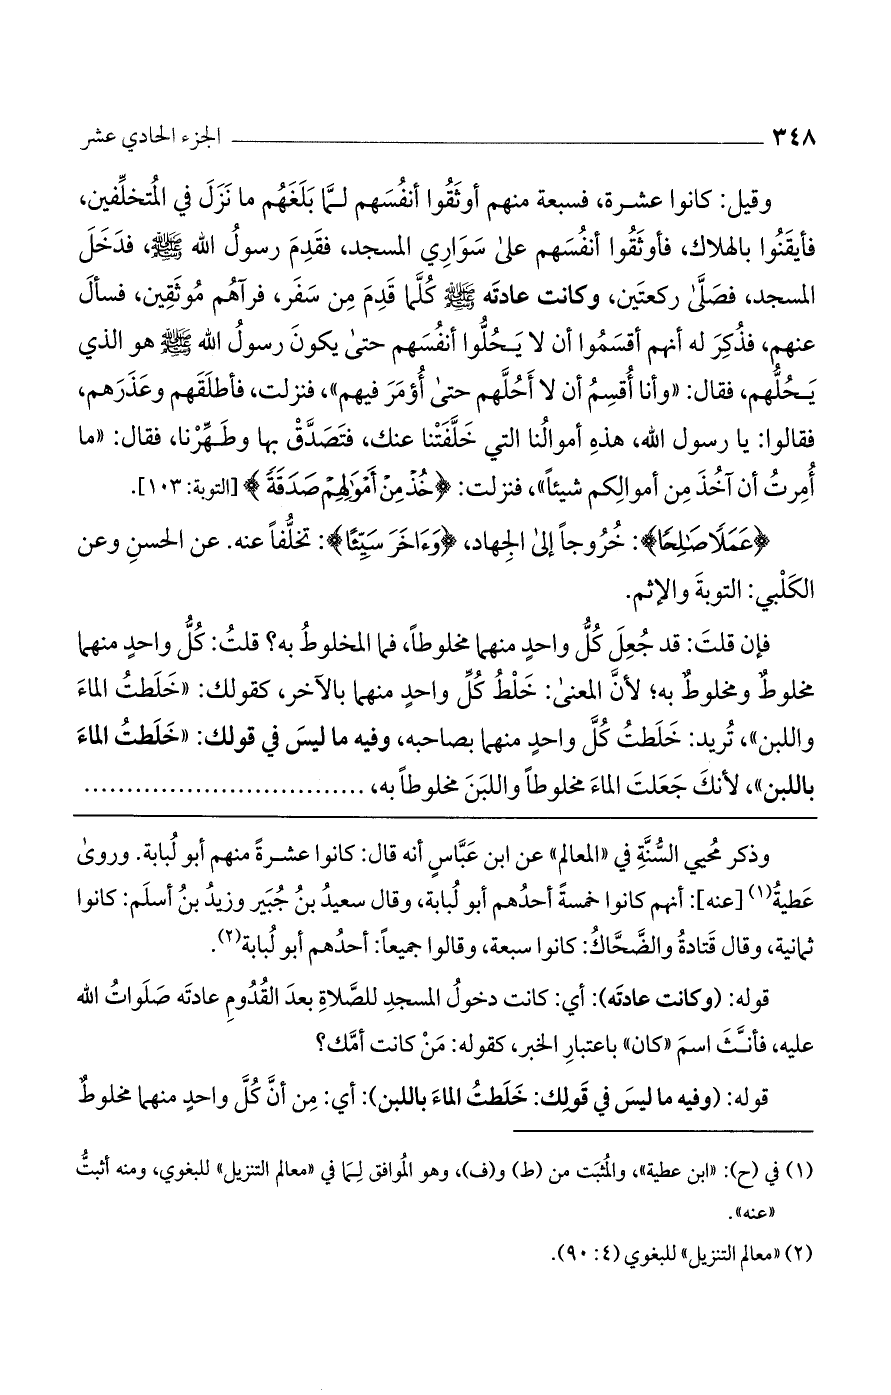 ٣٤٨ ــــــــــــــــــــــــــــــــــــــــ الجزء الحادي عشر
وقيل: كانوا عشـرة، فسبعة منهم أوثَقُوا أنفُسَهم لـمَّا بَلَغَهُم ما نَزَلَ في المُتخلِّفين،
فأيقَنُوا بالهلاك، فأوثَقُوا أنفُسَهم علىٰ سَوَارِي المسجد، فقَدِمَ رسولُ الله ﷺ، فدَخَلَ
المسجد، فصَلَّىٰ ركعتَين، وكانت عادتَه ﷺ كُلَّما قَدِمَ مِن سَفَر، فرآهُم مُوثَقِين، فسألَ
عنهم، فذُكِرَ له أنهم أقسَمُوا أن لا يَـحُلُّوا أنفُسَهم حتىٰ يكونَ رسولُ الله ﷺ هو الذي
يَـحُلُّهم، فقال: «وأنا أُقسِمُ أن لا أَحُلَّهم حتىٰ أُؤمَرَ فيهم»، فنزلت، فأطلَقَهم وعَذَرَهم،
فقالوا: يا رسول الله، هذهِ أموالُنا التي خَلَّفَتْنا عنك، فتَصَدَّقْ بها وطَـهِّرْنا، فقال: «ما
أُمِرتُ أن آخُذَ مِن أموالِكم شيئاً»، فنزلت: ﴿خُذْ مِنْ أَمْوَٰلِهِمْ صَدَقَةً﴾ [التوبة: ١٠٣].
﴿عَمَلًا صَٰلِحًا﴾: خُرُوجاً إلىٰ الجِهاد، ﴿وَءَاخَرَ سَيِّئًا﴾: تخلُّفاً عنه. عن الحسنِ وعن
الكَلْبي: التوبةَ والإثم.
فإن قلتَ: قد جُعِلَ كُلُّ واحدٍ منهما مخلوطاً، فما المخلوطُ به؟ قلتُ: كُلُّ واحدٍ منهما
مخلوطٌ ومخلوطٌ به؛ لأنَّ المعنىٰ: خَلْطُ كُلِّ واحدٍ منهما بالآخر، كقولك: «خَلَطتُ الماءَ
واللبن»، تُريد: خَلَطتُ كُلَّ واحدٍ منهما بصاحبه، وفيه ما ليسَ في قولك: «خَلَطتُ الماءَ
باللبن»، لأنكَ جَعَلتَ الماءَ مخلوطاً واللبَنَ مخلوطاً به، ................................
وذكر مُحيي السُّنَّةِ في «المعالم» عن ابن عَبَّاسٍ أنه قال: كانوا عشـرةً منهم أبو لُبابة. وروىٰ
عَطيةُ(١) [عنه]: أنهم كانوا خمسةً أحدُهم أبو لُبابة، وقال سعيدُ بنُ جُبَير وزيدُ بنُ أسلَم: كانوا
ثمانية، وقال قَتادةُ والضَّحَّاكُ: كانوا سبعة، وقالوا جميعاً: أحدُهم أبو لُبابة(٢).
قوله: (وكانت عادتَه): أي: كانت دخولُ المسجدِ للصَّلاةِ بعدَ القُدُومِ عادتَه صَلَواتُ الله
عليه، فأنـَّثَ اسمَ «كان» باعتبارِ الخبر، كقوله: مَنْ كانت أمَّك؟
قوله: (وفيه ما ليسَ في قَولِك: خَلَطتُ الماءَ باللبن): أي: مِن أنَّ كُلَّ واحدٍ منهما مخلوطٌ
(١) في (ح): «ابن عطية»، والمُثبَت من (ط) و(ف)، وهو المُوافق لِـمَا في «معالم التنزيل» للبغوي، ومنه أثبتُّ
«عنه».
(٢) «معالم التنزيل» للبغوي (٤: ٩٠).